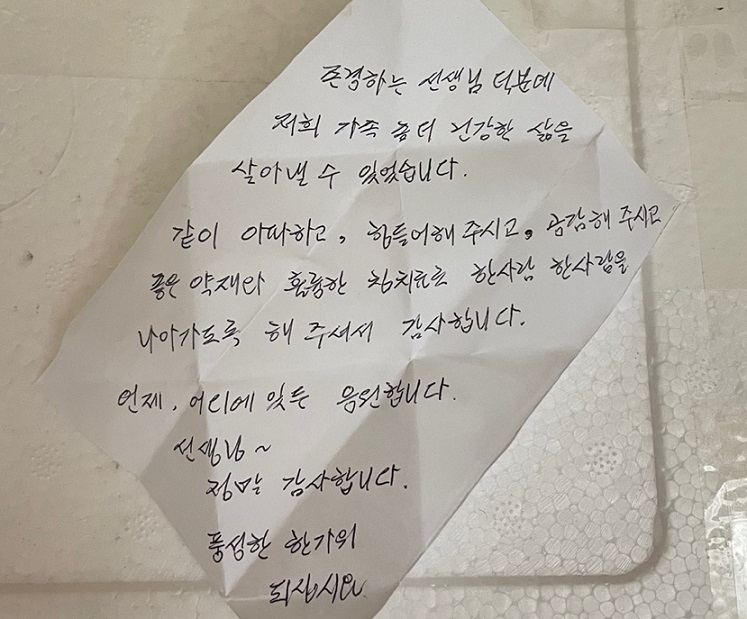 존경하는 선생님 덕분에
저희 가족 좀더 건강한 삶을
살아낼 수 있었습니다.
같이 아파하고, 힘들어해 주시고, 공감해 주시고
좋은 약재와 훌륭한 침치료로 한사람 한사람을
나아가도록 해 주셔서 감사합니다.
언제, 어디에 있든 응원합니다.
선생님~
정말 감사합니다.
풍성한 한가위
되십시요